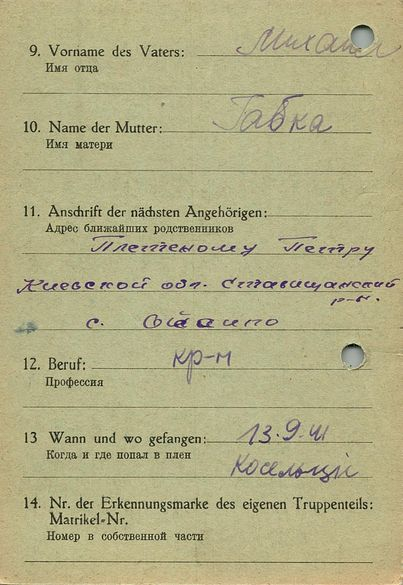 9. Vorname des Vaters: Михаил
Имя отца
10. Name der Mutter: Габка
Имя матери
11. Anschrift der nächsten Angehörigen:
Адрес ближайших родственников
Плетеному Петру
Киевской обл. Ставищанский
р-н.
с.
12. Beruf: кр-н
Профессия
13 Wann und wo gefangen: 13.9.41
Когда и где попал в плен
14. Nr. der Erkennungsmarke des eigenen Truppenteils:
Matrikel-Nr.
Номер в собственной части